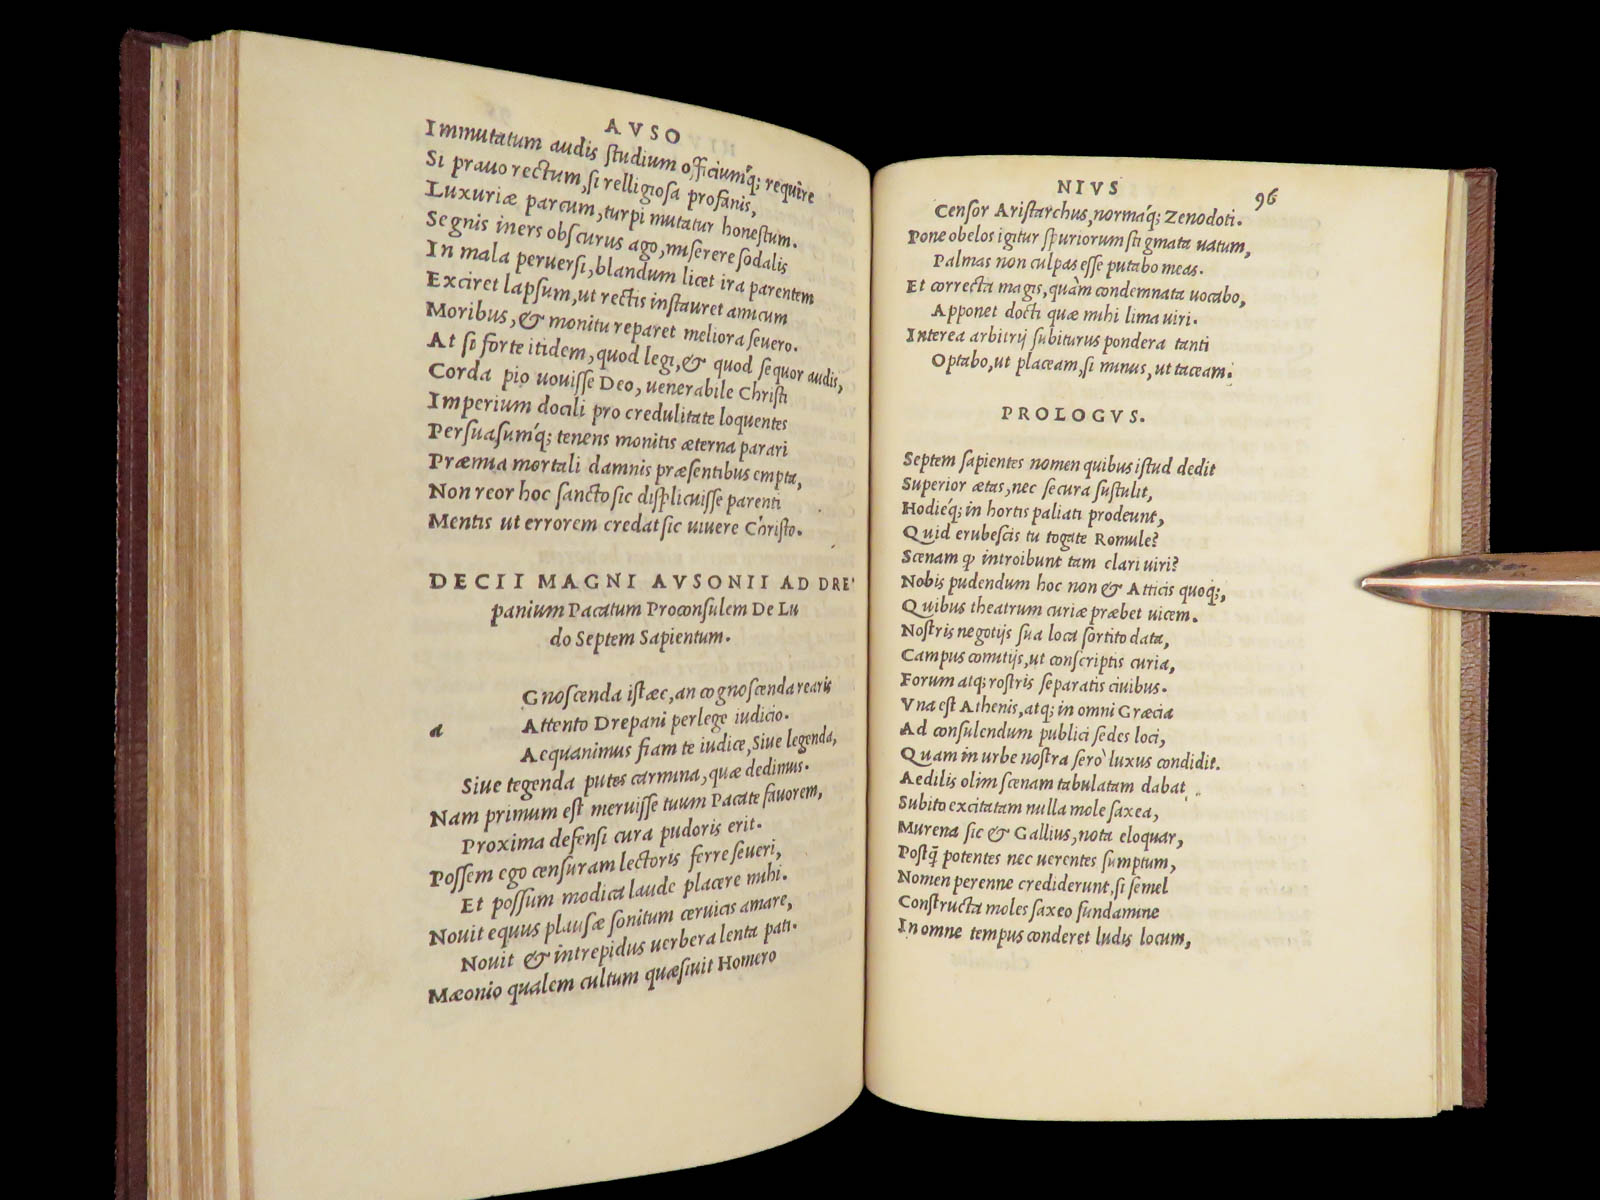 AVSO
Immutatum audis ſtudium officiumq́; require
Si prauo rectum, ſi relligioſa profanis,
Luxuriæ parcum, turpi mutatur honeſtum.
Segnis iners obſcurus ago, miſerere ſodalis
In mala peruerſi, blandum licet ira parentem
Exciret lapſum, ut rectis inſtauret amicum
Moribus, & monitu reparet meliora ſeuero.
At ſi forte itidem, quod legi, & quod ſequor audis,
Corda pio uouiſſe Deo, uenerabile Chriſti
Imperium docili pro credulitate loquentes
Perſuaſumq́; tenens monitis æterna parari
Præmia mortali damnis præſentibus empta,
Non reor hoc ſancto ſic diſplicuiſſe parenti
Mentis ut errorem credat ſic uiuere Chriſto.
DECII MAGNI AVSONII AD DRE'
panium Pacatum Proconſulem De Lu
do Septem Sapientum.
Gnoſcenda iſtæc, an cognoſcenda rearis
a Attento Drepani perlege iudicio.
Aequanimus fiam te iudice, Siue legenda,
Siue tegenda putes carmina, quæ dedimus.
Nam primum eſt meruiſſe tuum Pacate fauorem,
Proxima defenſi cura pudoris erit.
Poſſem ego cenſuram lectoris ferre ſeueri,
Et poſſum modica laude placere mihi.
Nouit equus plauſæ ſonitum ceruicis amare,
Nouit & intrepidus uerbera lenta pati.
Mæonio qualem cultum quæſiuit Homero
NIVS 96
Cenſor Ariſtarchus, normáq; Zenodoti.
Pone obelos igitur ſpuriorum ſtigmata uatum,
Palmas non culpas eſſe putabo meas.
Et correcta magis, quàm condemnata uocabo,
Apponet docti quæ mihi lima uiri.
Interea arbitrij ſubiturus pondera tanti
Optabo, ut placeam, ſi minus, ut taceam.
PROLOGVS.
Septem ſapientes nomen quibus iſtud dedit
Superior ætas, nec ſecura ſuſtulit,
Hodiéq; in hortis paliati prodeunt,
Quid erubeſcis tu togate Romule?
Scænam qꝫ introibunt tam clari uiri?
Nobis pudendum hoc non & Atticis quoq́;,
Quibus theatrum curiæ præbet uicem.
Noſtris negotijs ſua loca ſortito data,
Campus comitijs, ut conſcriptis curia,
Forum atq; roſtris ſeparatis ciuibus.
Vna eſt Athenis, atq; in omni Græcia
Ad conſulendum publici ſedes loci,
Quam in urbe noſtra ſerò luxus condidit.
Aedilis olim ſcenam tabulatam dabat
Subito excitatam nulla mole ſaxea,
Murena ſic & Gallius, nota eloquar,
Poſtq̄ potentes nec uerentes ſumptum,
Nomen perenne crediderunt, ſi ſemel
Conſtructa moles ſaxeo fundamine
In omne tempus conderet ludis locum,